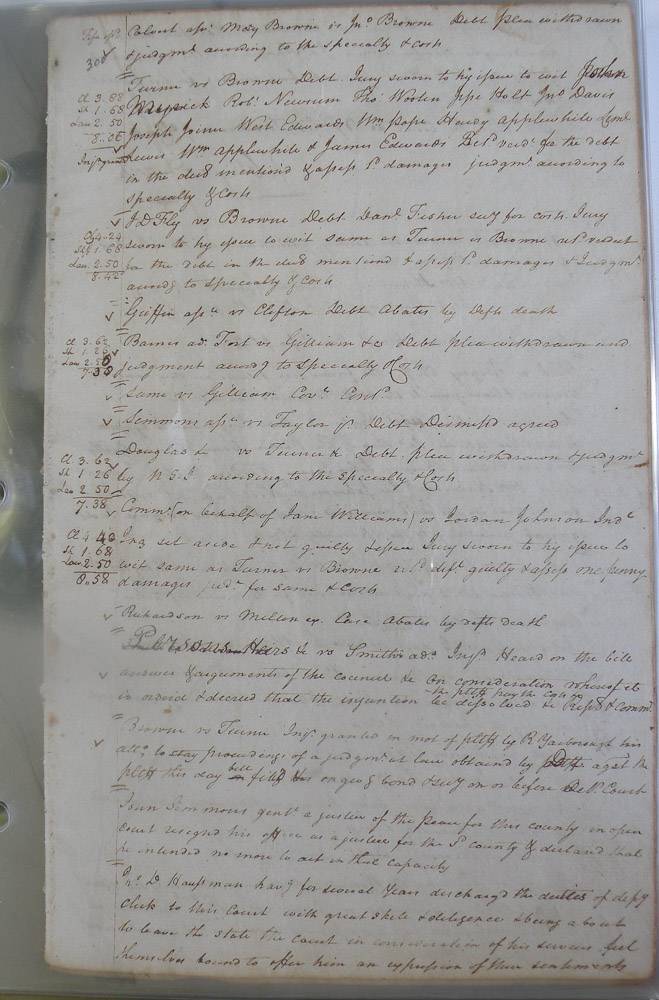 Calvert assee Mary Browne vs Jno Browne Debt plea withdrawn
& judgmt acording to the specialty & costs
300
Turner vs Browne Debt Jury sworn to try issue to wit
Cl 3.88
Sh 1.68
Law 2.50
8.06
Robt Newsum Tho Worten Jesse Holt Jno Davis
Joseph Joiner West Edwards Wm Pope Henry Applewhite Leml
Lewis Wm Applewhite & James Edwards Retd verdt for the debt
in the decl mentiond & assess 1d damages judgmt according to
specialty & Costs
J D Fly vs Browne Debt Danl Fisher secy for costs. Jury
4.24
Sh 1.68
Law. 2.50
8.42
sworn to try issue to wit same as Turner vs Browne retd verdict
for the debt in the decl mentiond & assess 1d damages & Judgmt
accordg to specialty & Costs
Griffin assee vs Clifton Debt Abates by Defts death
Cl 3.62
Sh 1.26
7.38
Barnes ad. Fort vs Gilliam & Debt plea withdrawn and
judgment accordg to Specialty & Costs
Same vs Gilliam Covt Contd
Simmons assee vs Taylor jr Debt Dismissd agreed
Douglas & vs Turner & Debt. plea withdrawn & judgmt
Cl 3.62
Sh 1.26
Law 2.50
7.38
by N S I according to the Specialty & Costs
Comm (on behalf of Jane Williams) vs Jordan Johnson Indt
Sh 1.68
Law 2.50
8.58
Inq set aside & not guilty & issue Jury sworn to try issue to
wit same as Turner vs Browne retd deft guilty & assess one penny
damages judt for same & Costs
Richardson vs Milton ex. Case Abates by defts death
& vs Smiths ad. Inj. Heard on the bill
answer & arguments of the council & On consideration whereof it
is orderd & decreed that the injunction be dissolved &
the pltff pay the costs
Browne vs Turner Inj. granted on mot of pltff by R Yarborough his
atto to stay proceedings of a judgmt at law obtained by Deft agst the
pltff this day bill filed on giving bond & secy on or before Court
John Simmons gent a justice of the peace for this county in open
court resignd his office as a justice for the sd county & declared that
he intended no more to act in that capacity
Jno D Haussman havg for several Years dischargd the duties of depy
clerk to this Court with great skill & diligence & being about
to leave the state the court in consideration of his services feel
themselves bound to offer him an expression of their sentiments